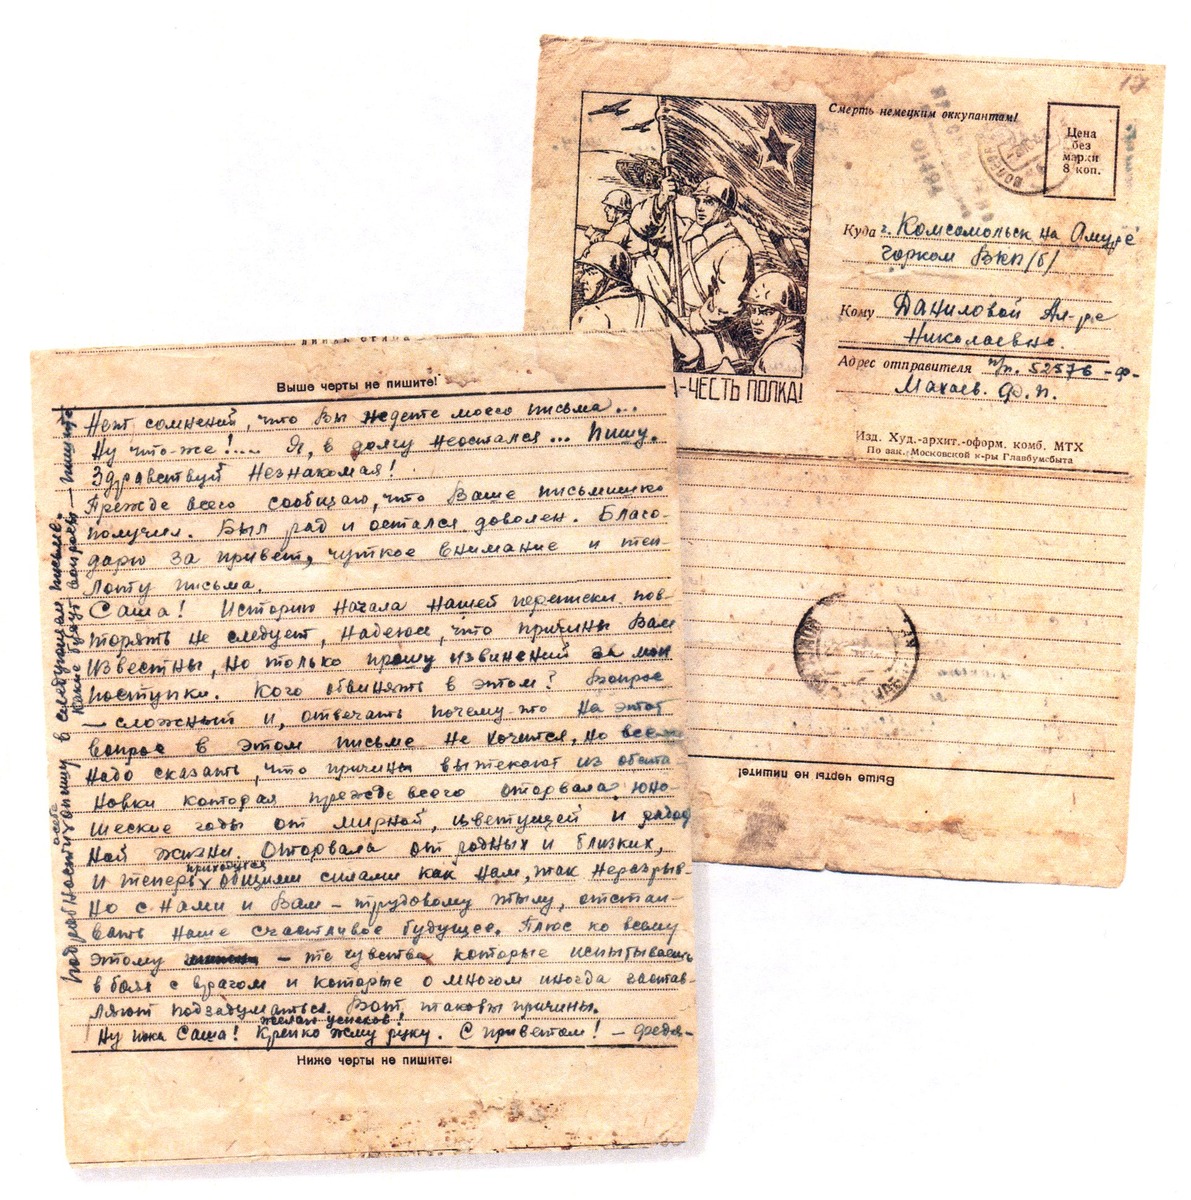 Смерть немецким оккупантам!
Цена
без
марки
8 коп.
01494
Куда г. Комсомольск на Амуре
горком ВКП/б/
Кому Даниловой Ал-ре
Николаевне.
Адрес отправителя п/п. 52576-ф-
Махаев. Ф. П.
А-ЧЕСТЬ ПОЛКА!
Изд. Худ.-архит.-оформ. комб. МТХ
По зак. Московской к-ры Главбумсбыта
Выше черты не пишите!
Выше черты не пишите!
Нет сомнений, что Вы ждете моего письма...
Ну что-же!.... Я, в долгу неостался... Пишу.
Здравствуй Незнакомая!
Прежде всего сообщаю, что Ваше письмишко
получил. Был рад и остался доволен. Благо-
дарю за привет, чуткое внимание и теп
лоту письма.
Саша! Историю начала нашей переписки пов-
торять не следует, надеюсь, что причины Вам
известны, но только прошу извинений за мои
поступки. Кого обвинять в этом? Вопрос
– сложный и, отвечать почему-то на этот
вопрос в этом письме не хочится. Но
надо сказать, что причины вытекают из обста
новки которая прежде всего оторвала юно-
шеские годы от мирной, цветущей и
ной жизни. Оторвала от родных и близких,
И теперь приходится общими силами как нам, так неразрыв-
но с нами и Вам – трудовому тылу, отстаи-
вать наше счастливое будущее. Плюс ко всему
этому – те чувства которые испытываешь
в боях с врагом и которые о многом иногда застав-
ляют подзадуматься. Вот, таковы причины.
Ну пока Саша! Желаю успехов! Крепко жму руку. С приветом! – Федя-
Подробности о себе напишу в следующем письме.
Какие будут вопросы – пишите
Ниже черты не пишите!